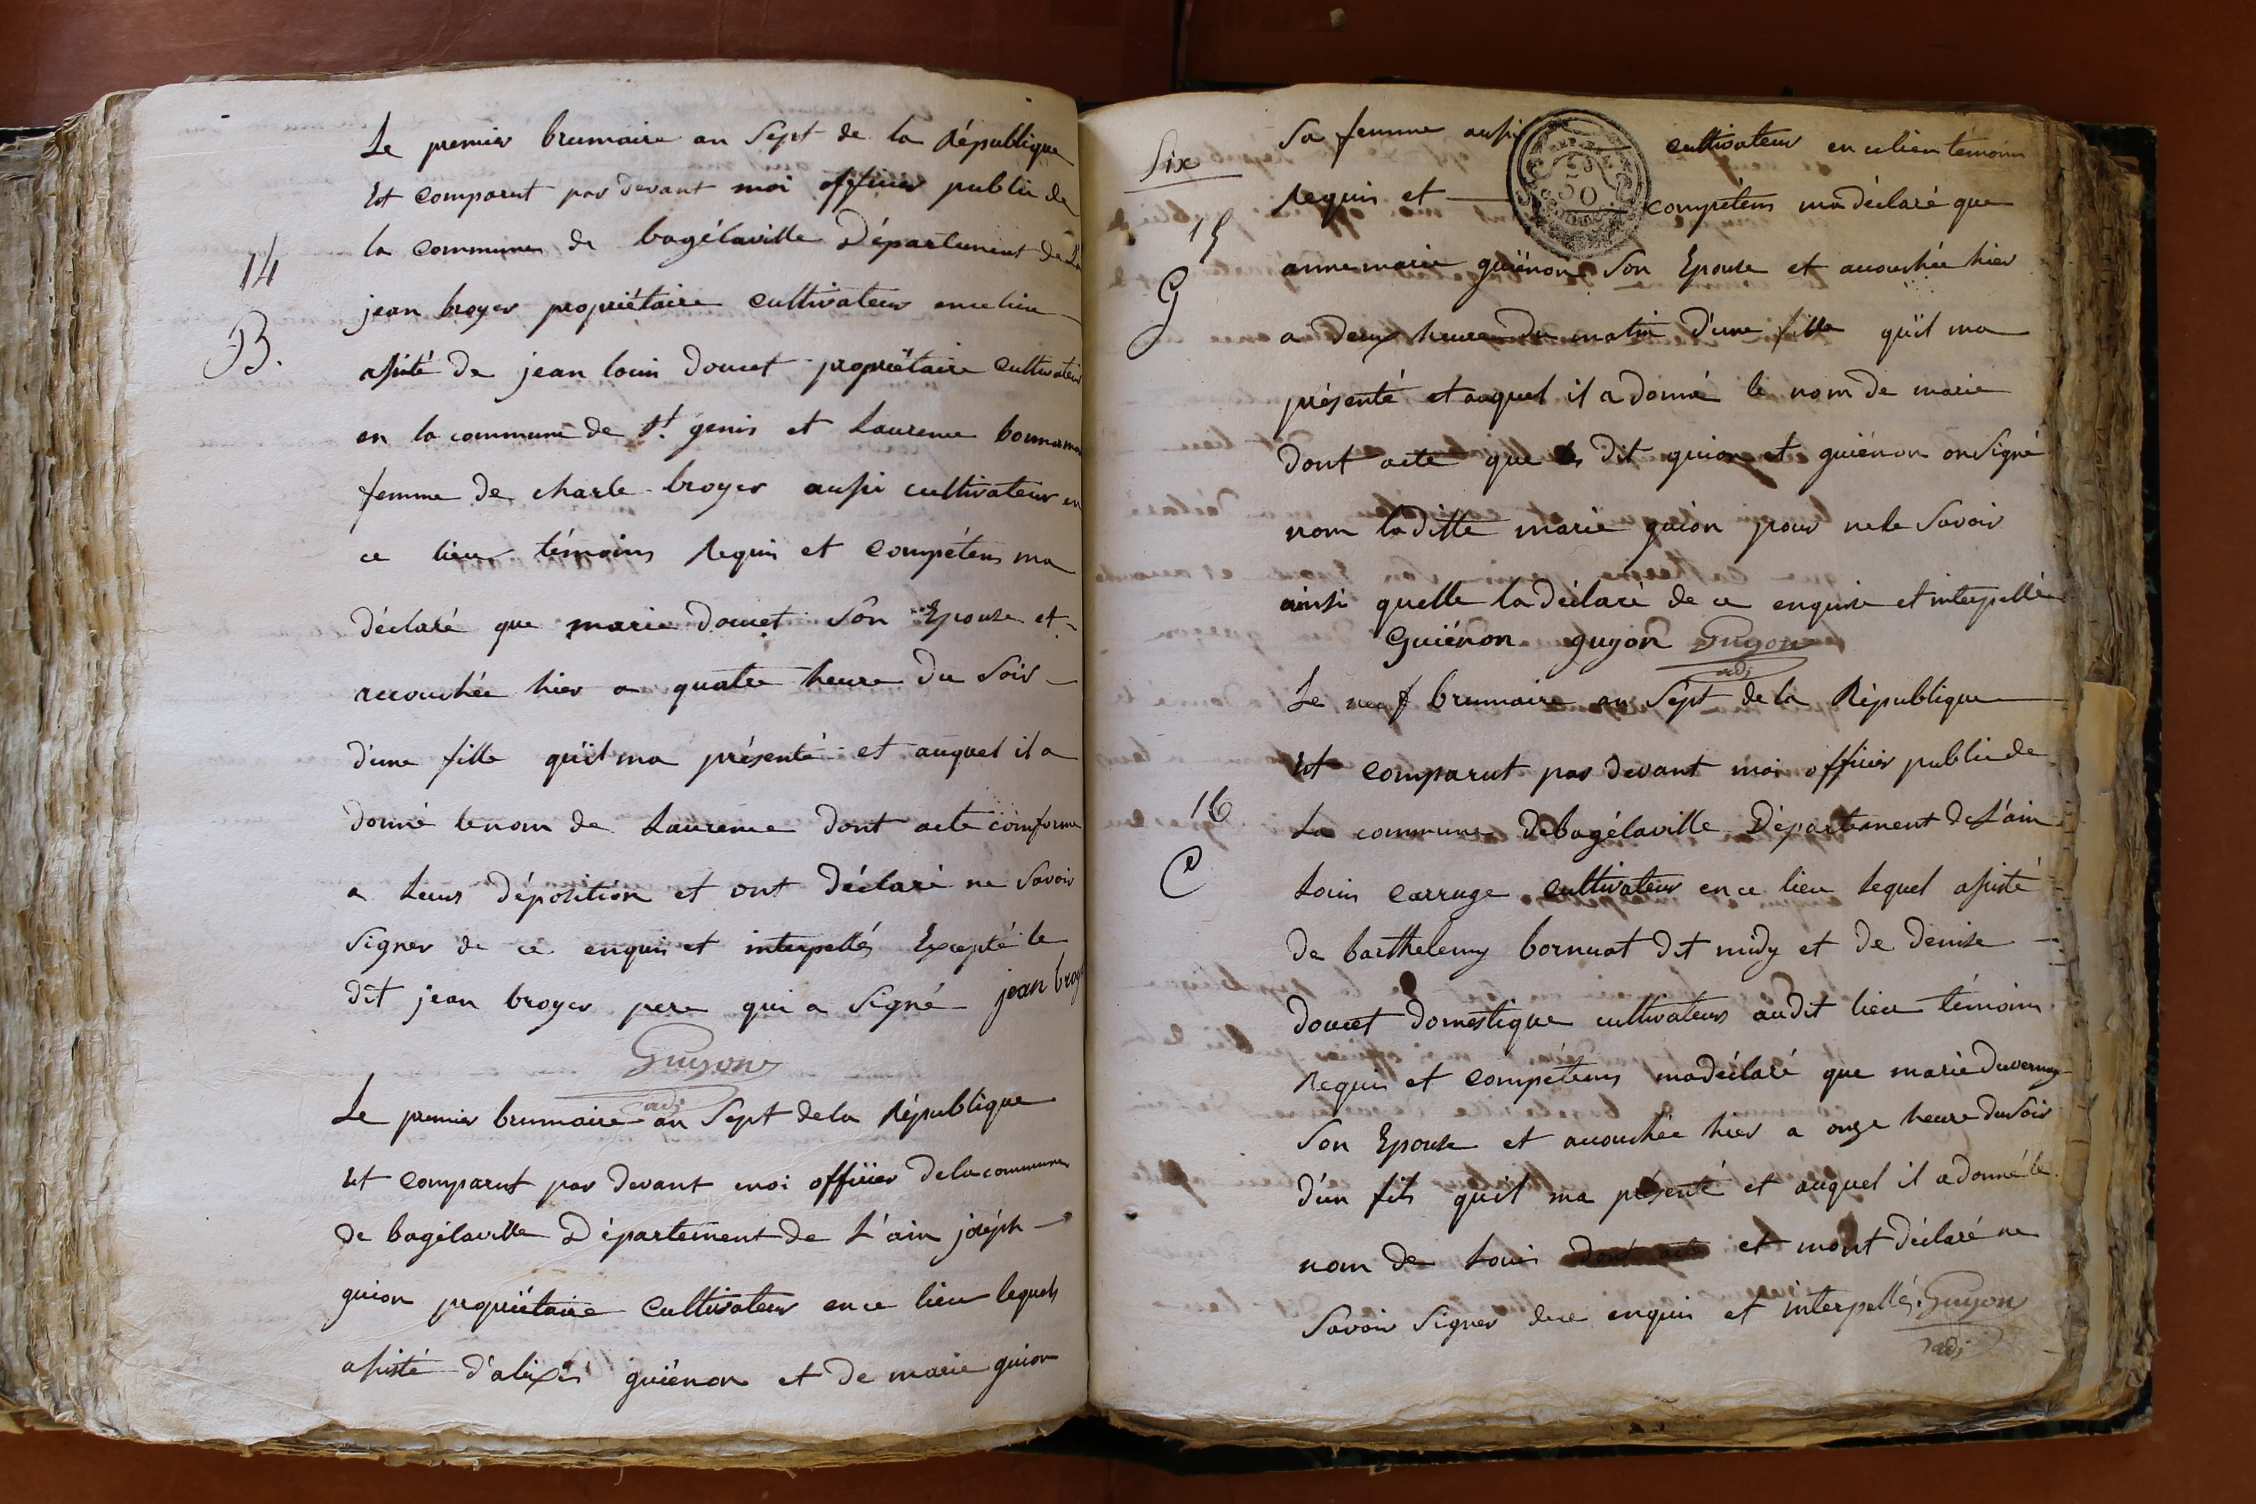 Le premier brumaire an Sept de la République
Est comparut par devant moi officier public de
la commune de bagélaville Département de L'ain
14
jean broyer propriétaire cultivateur ence lieu
B.
assisté de jean louis doucet propriétaire cultivateur
en la commune de St. genis et Laurence
femme de charle broyer aussi cultivateur en
ce lieu témoins Requis et compétens ma
déclaré que marie doucet Son Epouse et
accouchée hier a quatre heure du Soir
d'une fille qu'il ma présenté et auquel il a
donné lenom de Laurence dont acte comforme
a Leurs déposition et ont déclaré ne Savoir
Signer de ce enquis et interpellés Excepté le
dit jean broyer pere qui a Signé jean broyer
Guyon
adj
Le premier brumaire an Sept dela République
Est comparut par devant moi officier dela commune
de bagélaville Département de L'ain joseph
guion propriétaire cultivateur ence lieu lequels
assisté d'alexis guiénon et de marie guion
Six
Sa femme aussi cultivateur en celieu temoins
Requis et compétens ma déclaré que
15
G
anne marie guiénon Son Epouse et accouchée hier
a deux heure du matin d'une fille qu'il ma
présenté et auquel il a donné le nom de marie
dont acte que les dit guion et guiénon on Signé
nom laditte marie guion pour nele Savoir
ainsi quelle la déclaré de ce enquise et interpellée
Guiénon guyon Guyon
adj
Le neuf brumaire an Sept de la République
Est comparut par devant moi officier public de
16
La commune debagélaville Département de L'ain
C
Louis carruge cultivateur en ce lieu Lequel assisté
de barthelemy bornuat dit midy et de denise
doucet domestique cultivateurs audit lieu témoins
Requis et compétens madéclaré que marie duvernay
Son Epouse et accouchée hier a onze heure du Soir
d'un fils qu'il ma présenté et auquel il adonné le
nom de Louis dont acte et mont déclaré ne
Savoir Signer dece enquis et interpellés. Guyon
adj